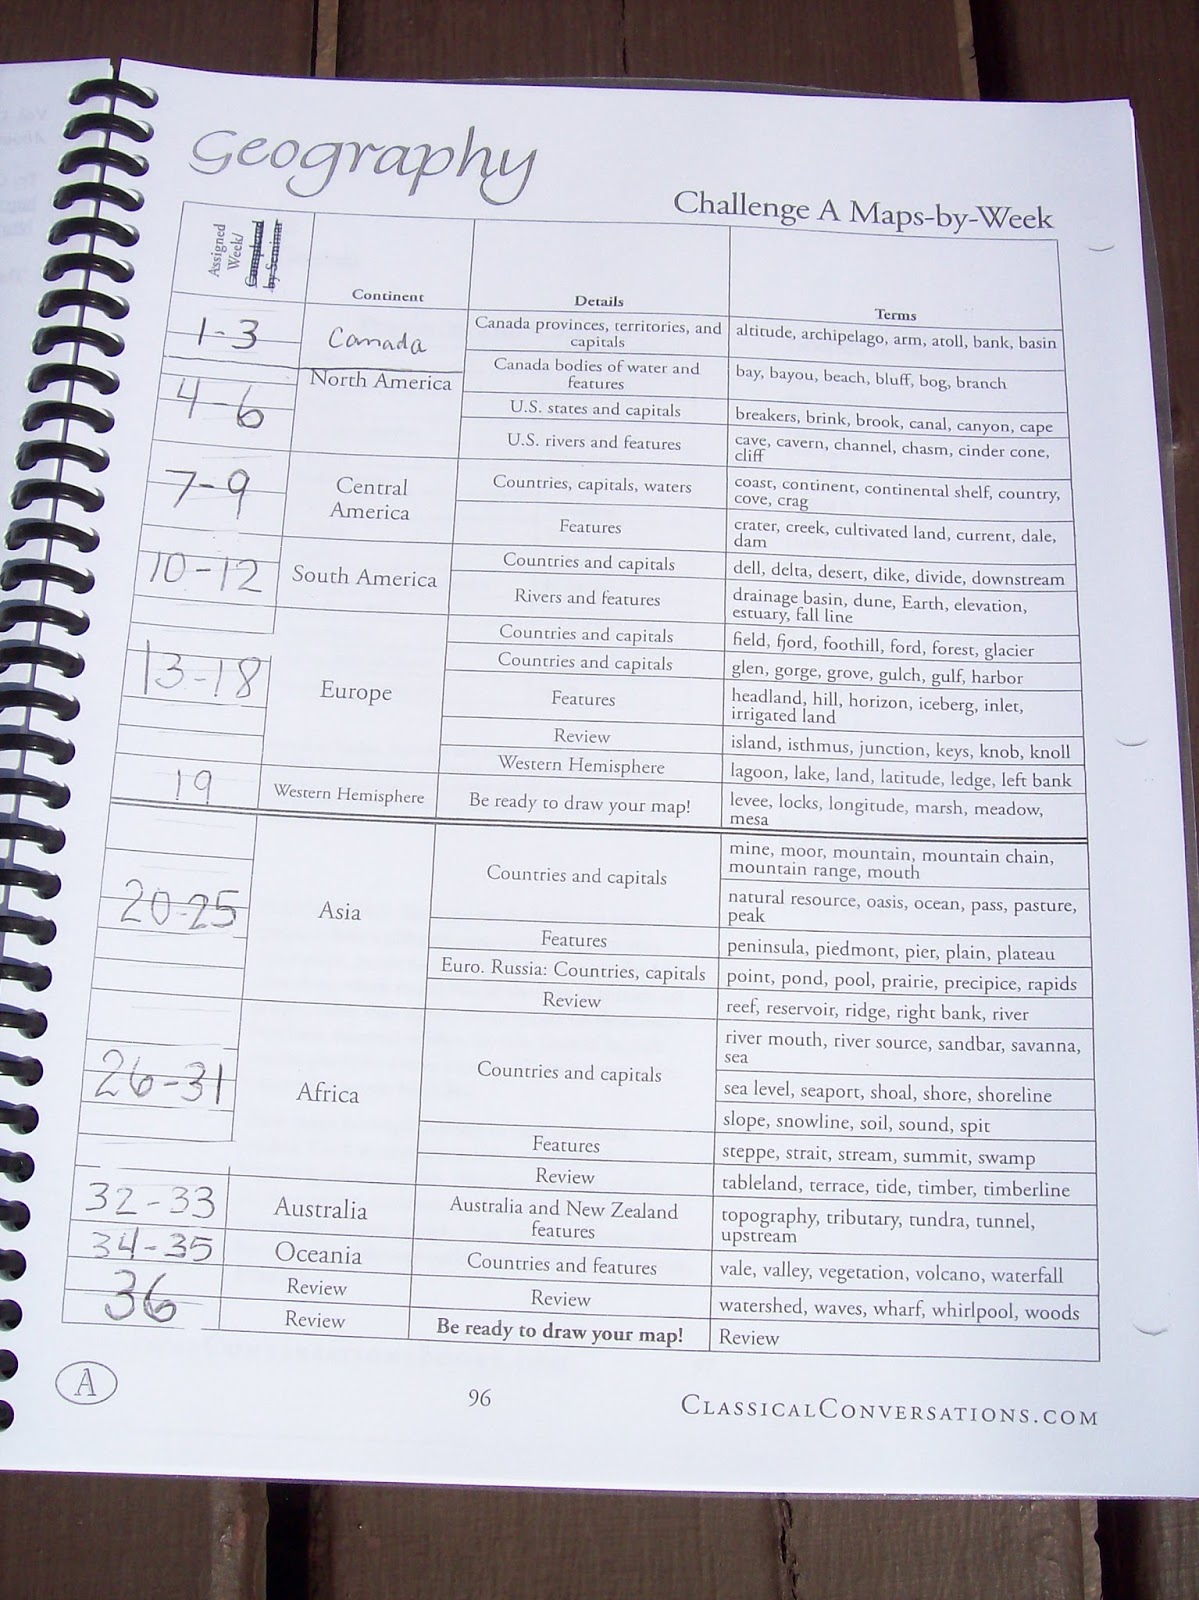 Geography
Challenge A Maps-by-Week
Assigned
Week/
Completed
by Seminar
Continent
Details
Terms
1-3
Canada
Canada provinces, territories, and
capitals
altitude, archipelago, arm, atoll, bank, basin
4-6
North America
Canada bodies of water and
features
bay, bayou, beach, bluff, bog, branch
U.S. states and capitals
breakers, brink, brook, canal, canyon, cape
U.S. rivers and features
cave, cavern, channel, chasm, cinder cone,
cliff
7-9
Central
America
Countries, capitals, waters
coast, continent, continental shelf, country,
cove, crag
Features
crater, creek, cultivated land, current, dale,
dam
10-12
South America
Countries and capitals
dell, delta, desert, dike, divide, downstream
Rivers and features
drainage basin, dune, Earth, elevation,
estuary, fall line
13-18
Europe
Countries and capitals
field, fjord, foothill, ford, forest, glacier
Countries and capitals
glen, gorge, grove, gulch, gulf, harbor
Features
headland, hill, horizon, iceberg, inlet,
irrigated land
Review
island, isthmus, junction, keys, knob, knoll
Western Hemisphere
lagoon, lake, land, latitude, ledge, left bank
19
Western Hemisphere
Be ready to draw your map!
levee, locks, longitude, marsh, meadow,
mesa
20-25
Asia
Countries and capitals
mine, moor, mountain, mountain chain,
mountain range, mouth
natural resource, oasis, ocean, pass, pasture,
peak
Features
peninsula, piedmont, pier, plain, plateau
Euro. Russia: Countries, capitals
point, pond, pool, prairie, precipice, rapids
Review
reef, reservoir, ridge, right bank, river
26-31
Africa
Countries and capitals
river mouth, river source, sandbar, savanna,
sea
sea level, seaport, shoal, shore, shoreline
slope, snowline, soil, sound, spit
Features
steppe, strait, stream, summit, swamp
Review
tableland, terrace, tide, timber, timberline
32-33
Australia
Australia and New Zealand
features
topography, tributary, tundra, tunnel,
upstream
34-35
Oceania
Countries and features
vale, valley, vegetation, volcano, waterfall
36
Review
Review
watershed, waves, wharf, whirlpool, woods
Review
Be ready to draw your map!
Review
A
96
CLASSICALCONVERSATIONS.COM